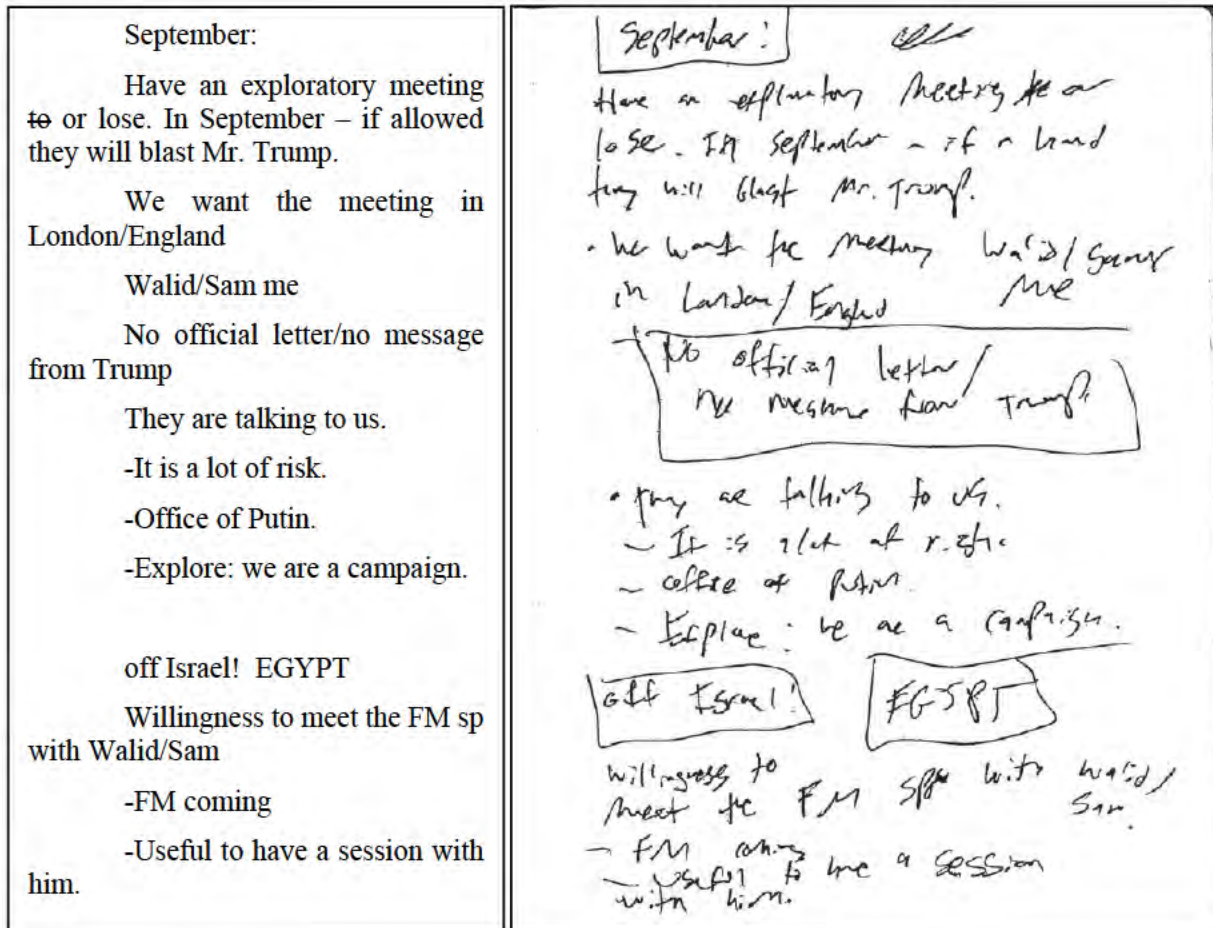 September:
Have an exploratory meeting
to or lose. In September – if allowed
they will blast Mr. Trump.
We want the meeting in
London/England
Walid/Sam me
No official letter/no message
from Trump
They are talking to us.
-It is a lot of risk.
-Office of Putin.
-Explore: we are a campaign.
off Israel! EGYPT
Willingness to meet the FM sp
with Walid/Sam
-FM coming
-Useful to have a session with
him.
September:
Have an exploratory meeting to or
lose. In September - if
they will blast Mr. Trump.
• We want the meeting Walid/
me
in London/England
- No official letter/
no message from Trump
• They are talking to us.
- It is a lot of risk
- Office of Putin.
- Explore: we are a campaign.
off Israel! EGYPT
willingness to
meet the FM with Walid/
Sam.
- FM coming
- useful to have a session
with him.